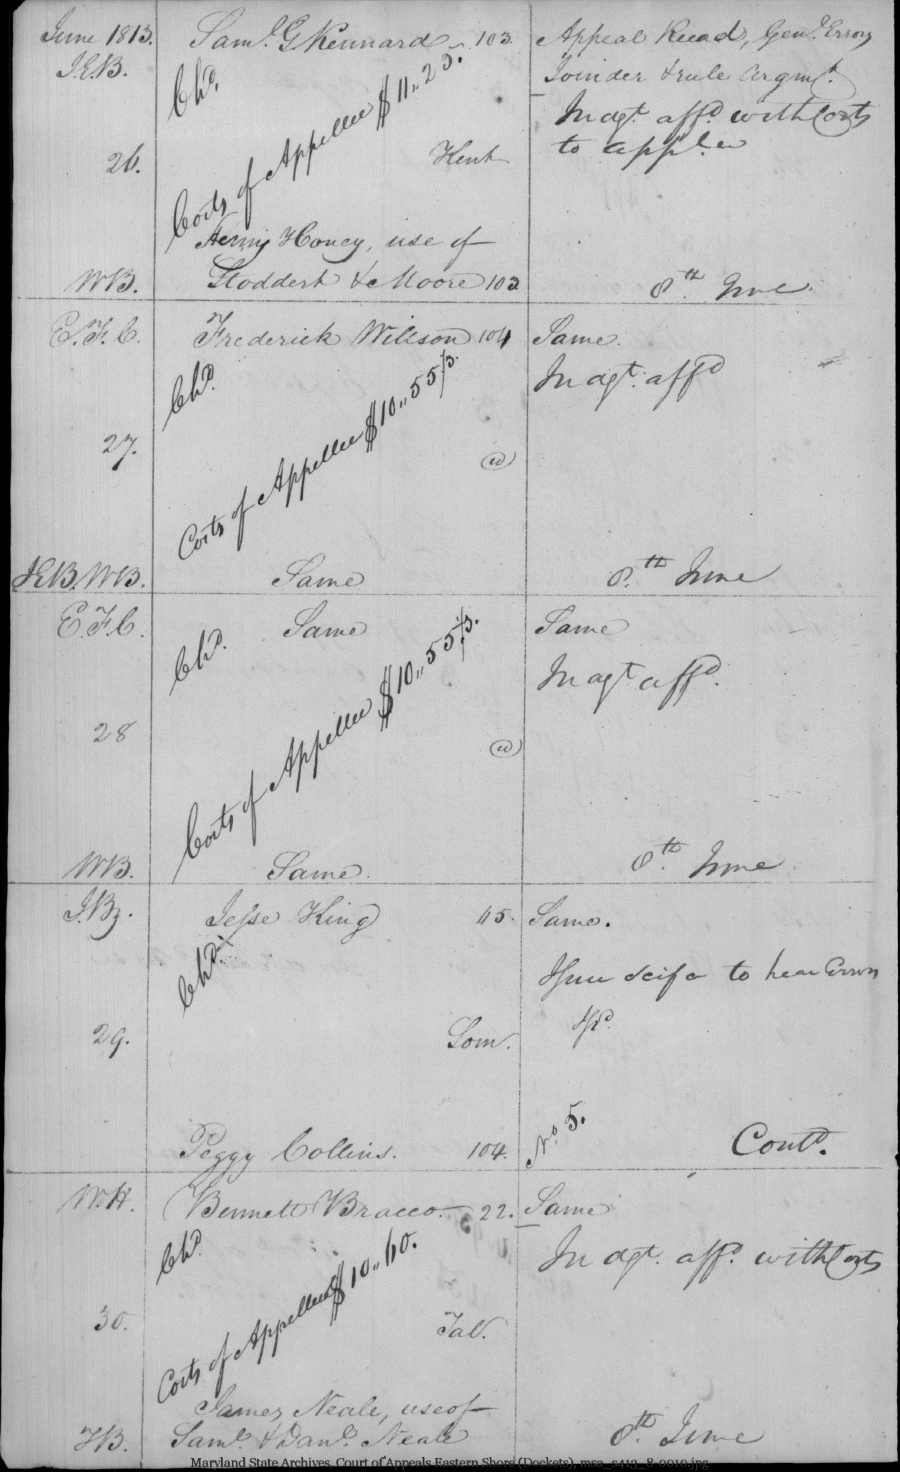 June 1813.
J.E.B.
26.
W.B.
Saml. G. Kennard 103
Chd.
Costs of Appellee $11,,23.
Kent
Henry Honey, use of
Stoddert & Moore 103
Appeal Read, Genl. Errors
Joinder & rule Argmt.
Judgt. affd. with Costs
to appl.ee
8th. June.
E.F.C.
27.
J.E.B. W.B.
Frederick Willson 104
Chd.
Costs of Appellee $10,,55⅓.
Same
Same.
Judgt. affd
8.th June
E.F.C.
28
W.B.
Same
Chd.
Costs of Appellee $10,,55⅓.
Same.
Same
Judgt affd.
8th. June
29.
Jesse King 115.
Chd.
Som.
Peggy Collins. 104.
Same.
Issue scifa to hear Errors
No. 5.
Contd.
W.H.
30.
Bennett Bracco 22.
Chd.
Costs of Appellee $10,,60.
Tal.
James Neale, use of
Saml. & Danl. Neale
Same
Judgt. affd. with Costs
8th. June
Maryland State Archives, Court of Appeals Eastern Shore (Dockets), msa_s419_8-0010.jpg